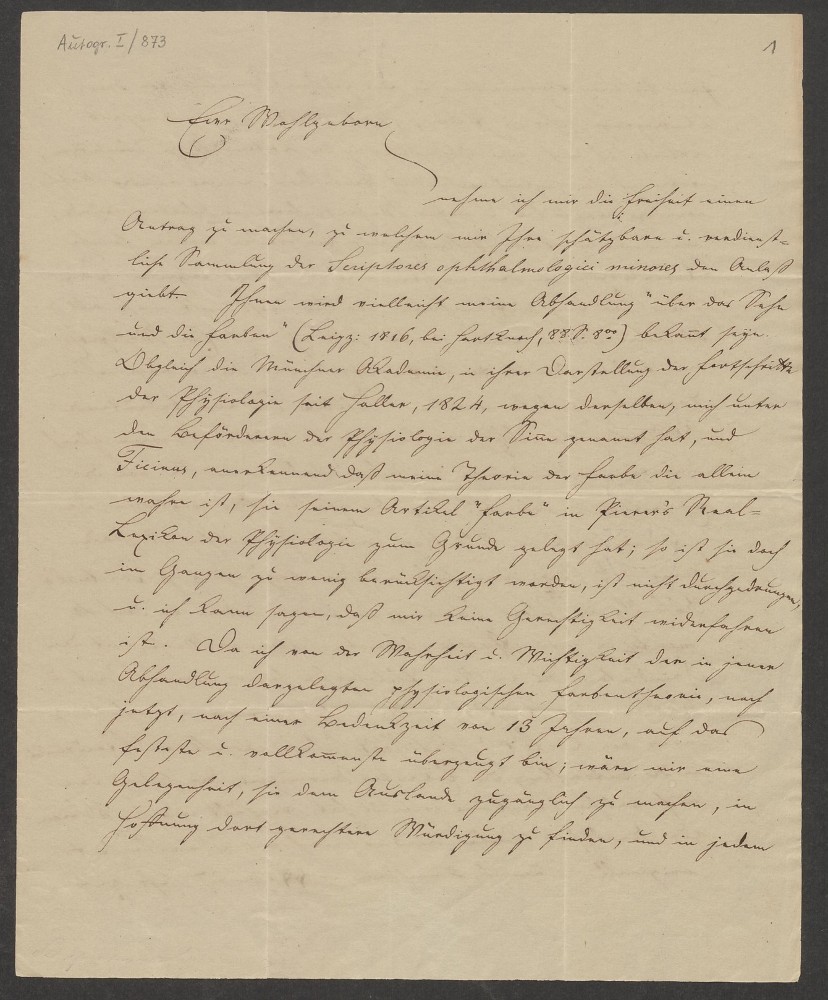 Autogr. I/873
1
Ew Wohlgeborn
nehme ich mir die Freiheit einen
Antrag zu machen, zu welchem mir Ihre schätzbare u. verdienst-
liche Sammlung der Scriptores ophthalmologici minores den Anlaß
giebt. Ihnen wird vielleicht meine Abhandlung "über das Sehn
und die Farben" (Leipz: 1816, bei Hartknoch, 88 S. 8vo) bekannt seyn.
Obgleich die Münchner Akademie, in ihrer Darstellung der Fortschritte
der Physiologie seit Haller, 1824, wegen derselben, mich unter
den Beförderern der Physiologie der Sinne genannt hat, und
Ficinus, anerkennend daß meine Theorie der Farbe die allein
wahre ist, sie seinem Artikel "Farbe" in Pierer's Real-
Lexikon der Physiologie zum Grunde gelegt hat; so ist sie doch
im Ganzen zu wenig berücksichtigt worden, ist nicht durchgedrungen,
u. ich kann sagen, daß mir keine Gerechtigkeit widerfahren
ist. Da ich von der Wahrheit u. Wichtigkeit der in jener
Abhandlung dargelegten physiologischen Farbentheorie, noch
jetzt, nach einer Bedenkzeit von 13 Jahren, auf das
festeste u. vollkommenste überzeugt bin; wäre mir eine
Gelegenheit, sie dem Auslande zugänglich zu machen, in
Hoffnung dort gerechtere Würdigung zu finden, und in jedem